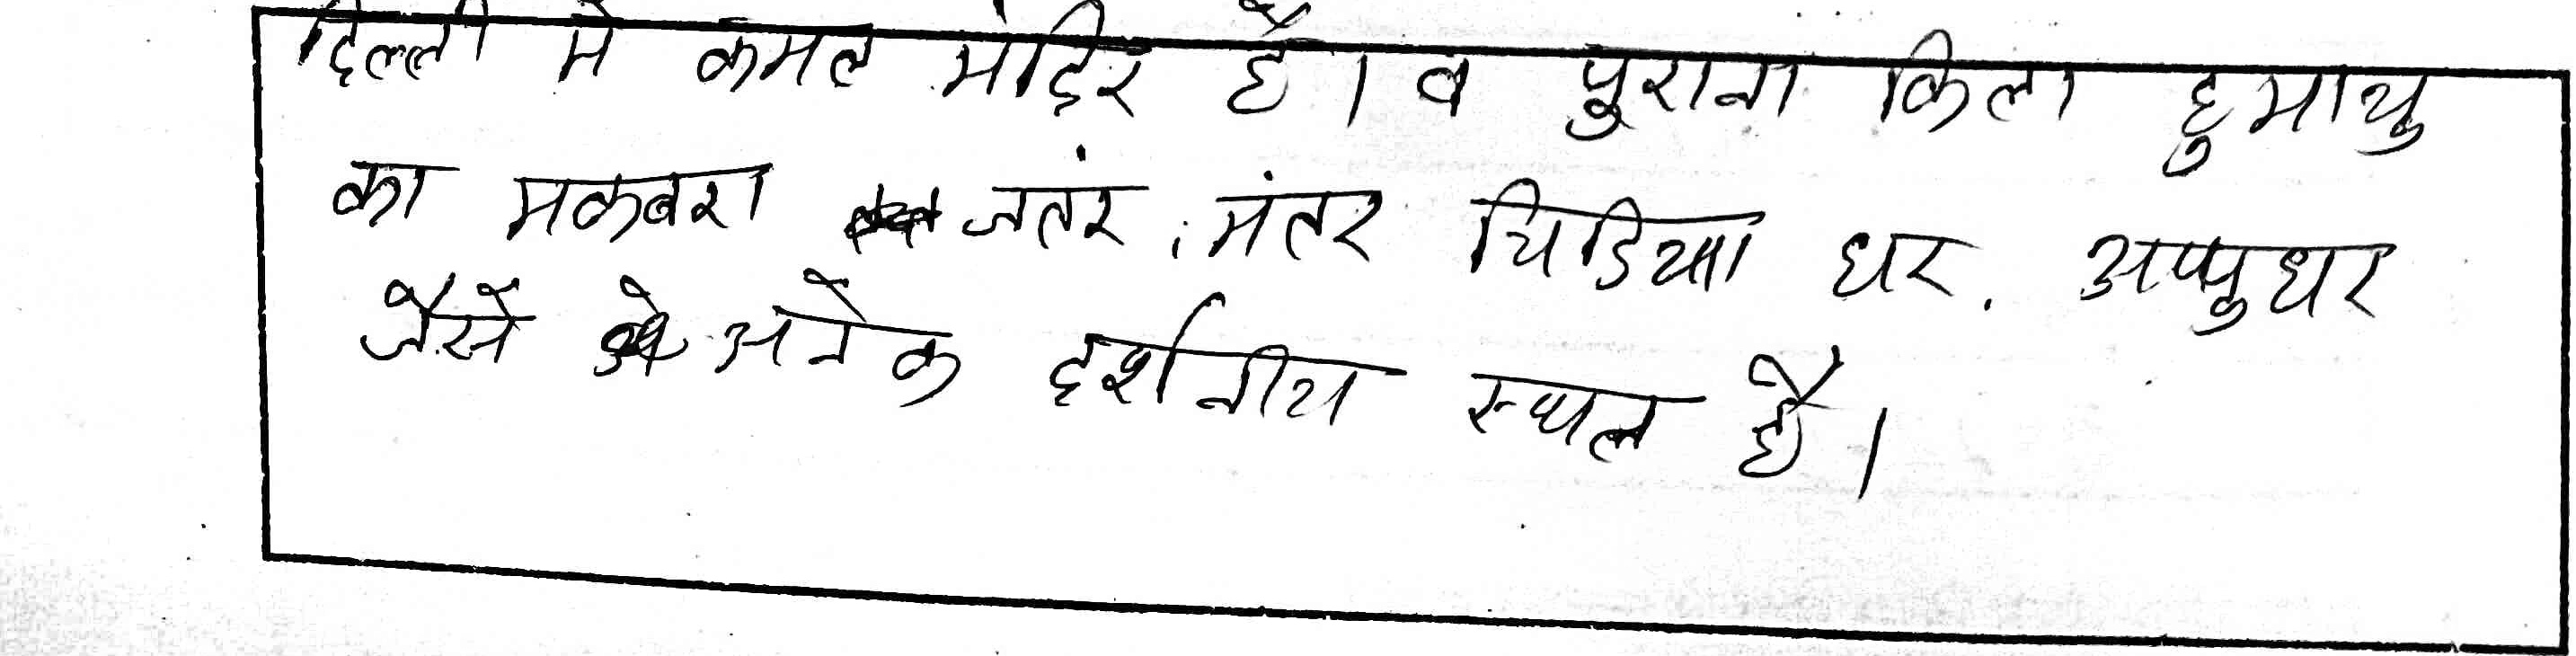 दिल्ली मे कमल मंदिर है। व पुराना किला हुमायु
का मकबरा जतंर मंतर चिडिया घर. अप्पुघर
जैसे अनेक दर्शनीय स्थल है।